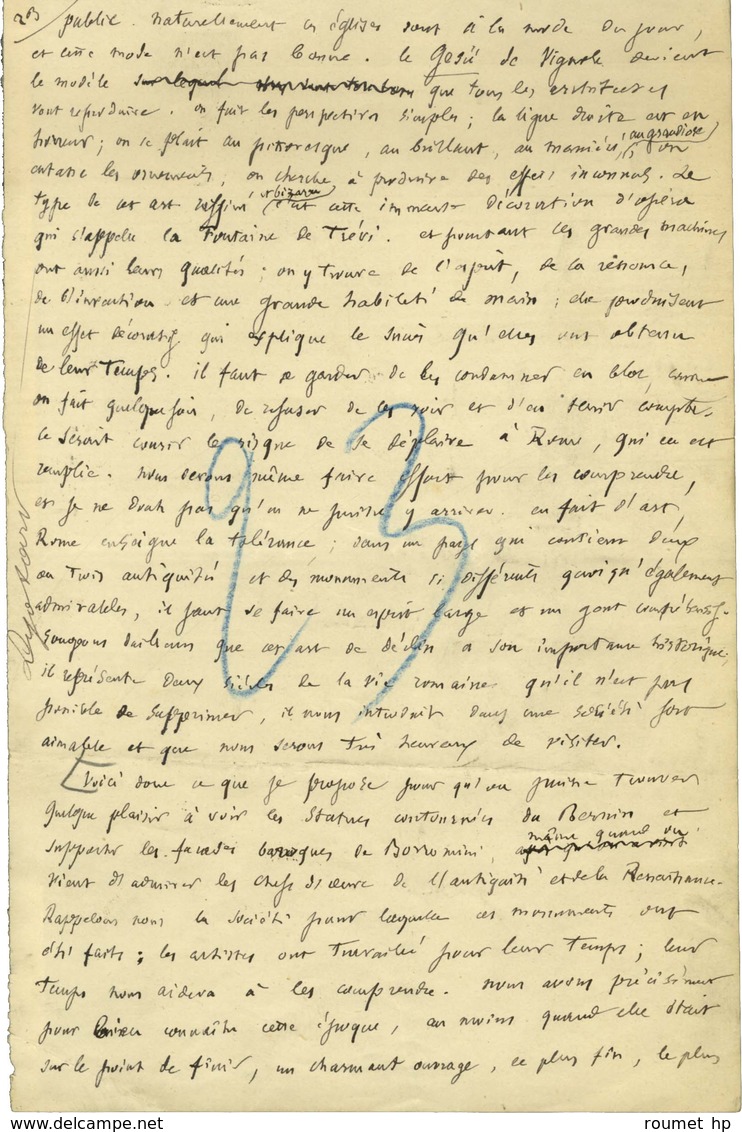 public. naturellement ces églises sont à la mode du jour,
et cette mode n'est pas bonne. le Gesù de Vignole devient
le modèle que tous les architectes
vont reproduire. on fuit les perspectives simples; la ligne droite est en
horreur; on se plait au pittoresque, au brillant, au maniéré, au grandiose, on
entasse les ornements, on cherche à produire des effets inconnus. Le
type de cet art raffiné et bizarre c'est cette immense décoration d'opéra
qui s'appelle la Fontaine de Trévi. et pourtant ces grandes machines
ont aussi leurs qualités; on y trouve de l'esprit, de la ressource,
de l'invention et une grande habileté de main; elles produisent
un effet décoratif qui explique le succès qu'elles ont obtenu
de leur temps. il faut se garder de les condamner en bloc, comme
on fait quelquefois, de refuser de les voir et d'en tenir compte.
ce serait courir le risque de se déplaire à Rome, qui en est
remplie. nous devons même faire effort pour les comprendre,
et je ne doute pas qu'on ne puisse y arriver. en fait d'art,
Rome enseigne la tolérance; dans un pays qui contient deux
ou trois antiquités et des monuments si différents quoiqu'également
admirables, il faut se faire un esprit large et un gout compréhensif.
Songeons d'ailleurs que cet art de déclin a son importance historique;
il représente deux siècles de la vie romaine qu'il n'est pas
possible de supprimer, il nous introduit dans une société fort
aimable et que nous serons très heureux de visiter.
[Voici donc ce que je propose pour qu'on puisse trouver
quelque plaisir à voir les statues contournées du Bernin et
supporter les façades baroques de Borromini, même quand on
vient d'admirer les chefs d'œuvre de l'antiquité et de la Renaissance.
Rappelons nous la société pour laquelle ces monuments ont
été faits; les artistes ont travaillé pour leur temps; leur
temps nous aidera à les comprendre. nous avons précisément
pour bien connaître cette époque, au moins quand elle était
sur le point de finir, un charmant ouvrage, le plus fin, le plus
23
roumet hp